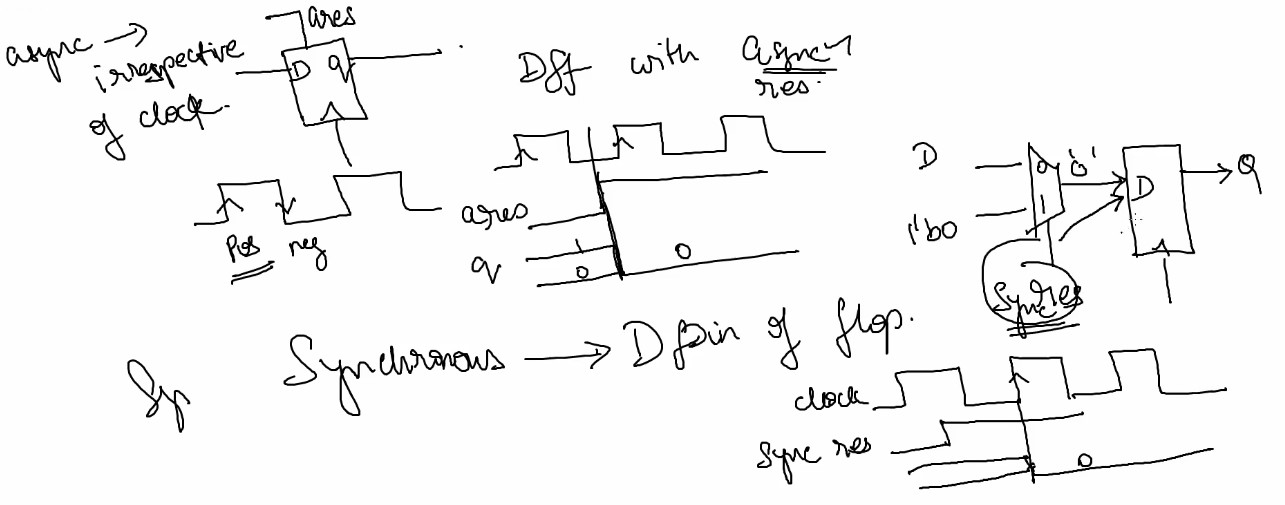 async → ares
irrespective
of clock.
D q
Pos neg
Dff with async
res.
ares
q 1
0 0
D 0 '0'
D Q
1'b0 1
Sync res
Synchronous → D pin of flop.
Sy
clock
Sync res
0